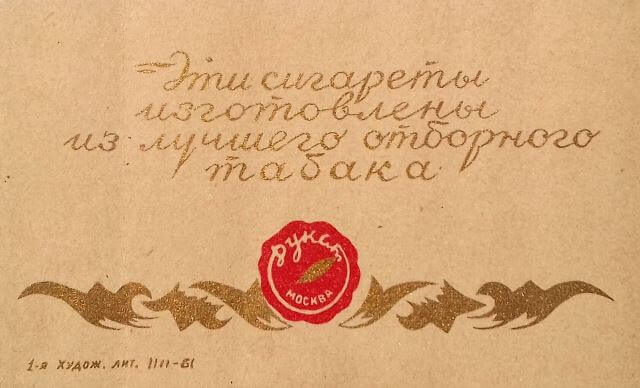 Эти сигареты
изготовлены
из лучшего отборного
табака
Дукат
МОСКВА
1-я ХУДОЖ. ЛИТ.